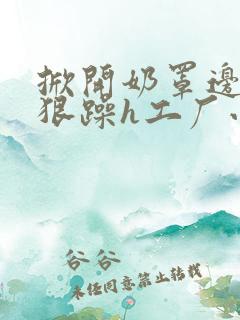 掀開奶罩邊
狠躁h工厂
谷谷
未经同意禁止转载